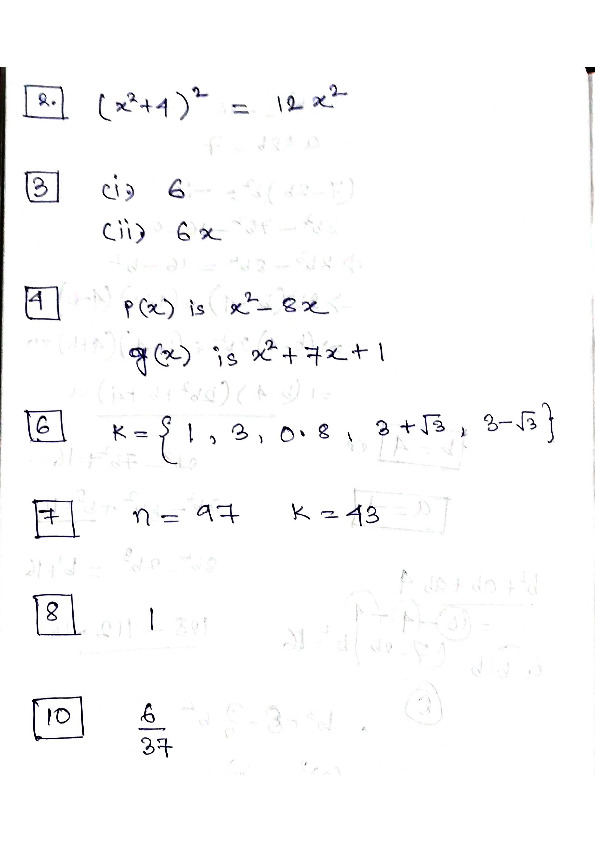 2. (x²+4)² = 12x²
3 (i) 6
(ii) 6x
4 P(x) is x²-8x
g(x) is x²+7x+1
6 K = { 1, 3, 0.8, 3+√3, 3-√3}
7 n = 97 K = 43
8 1
10 6/37